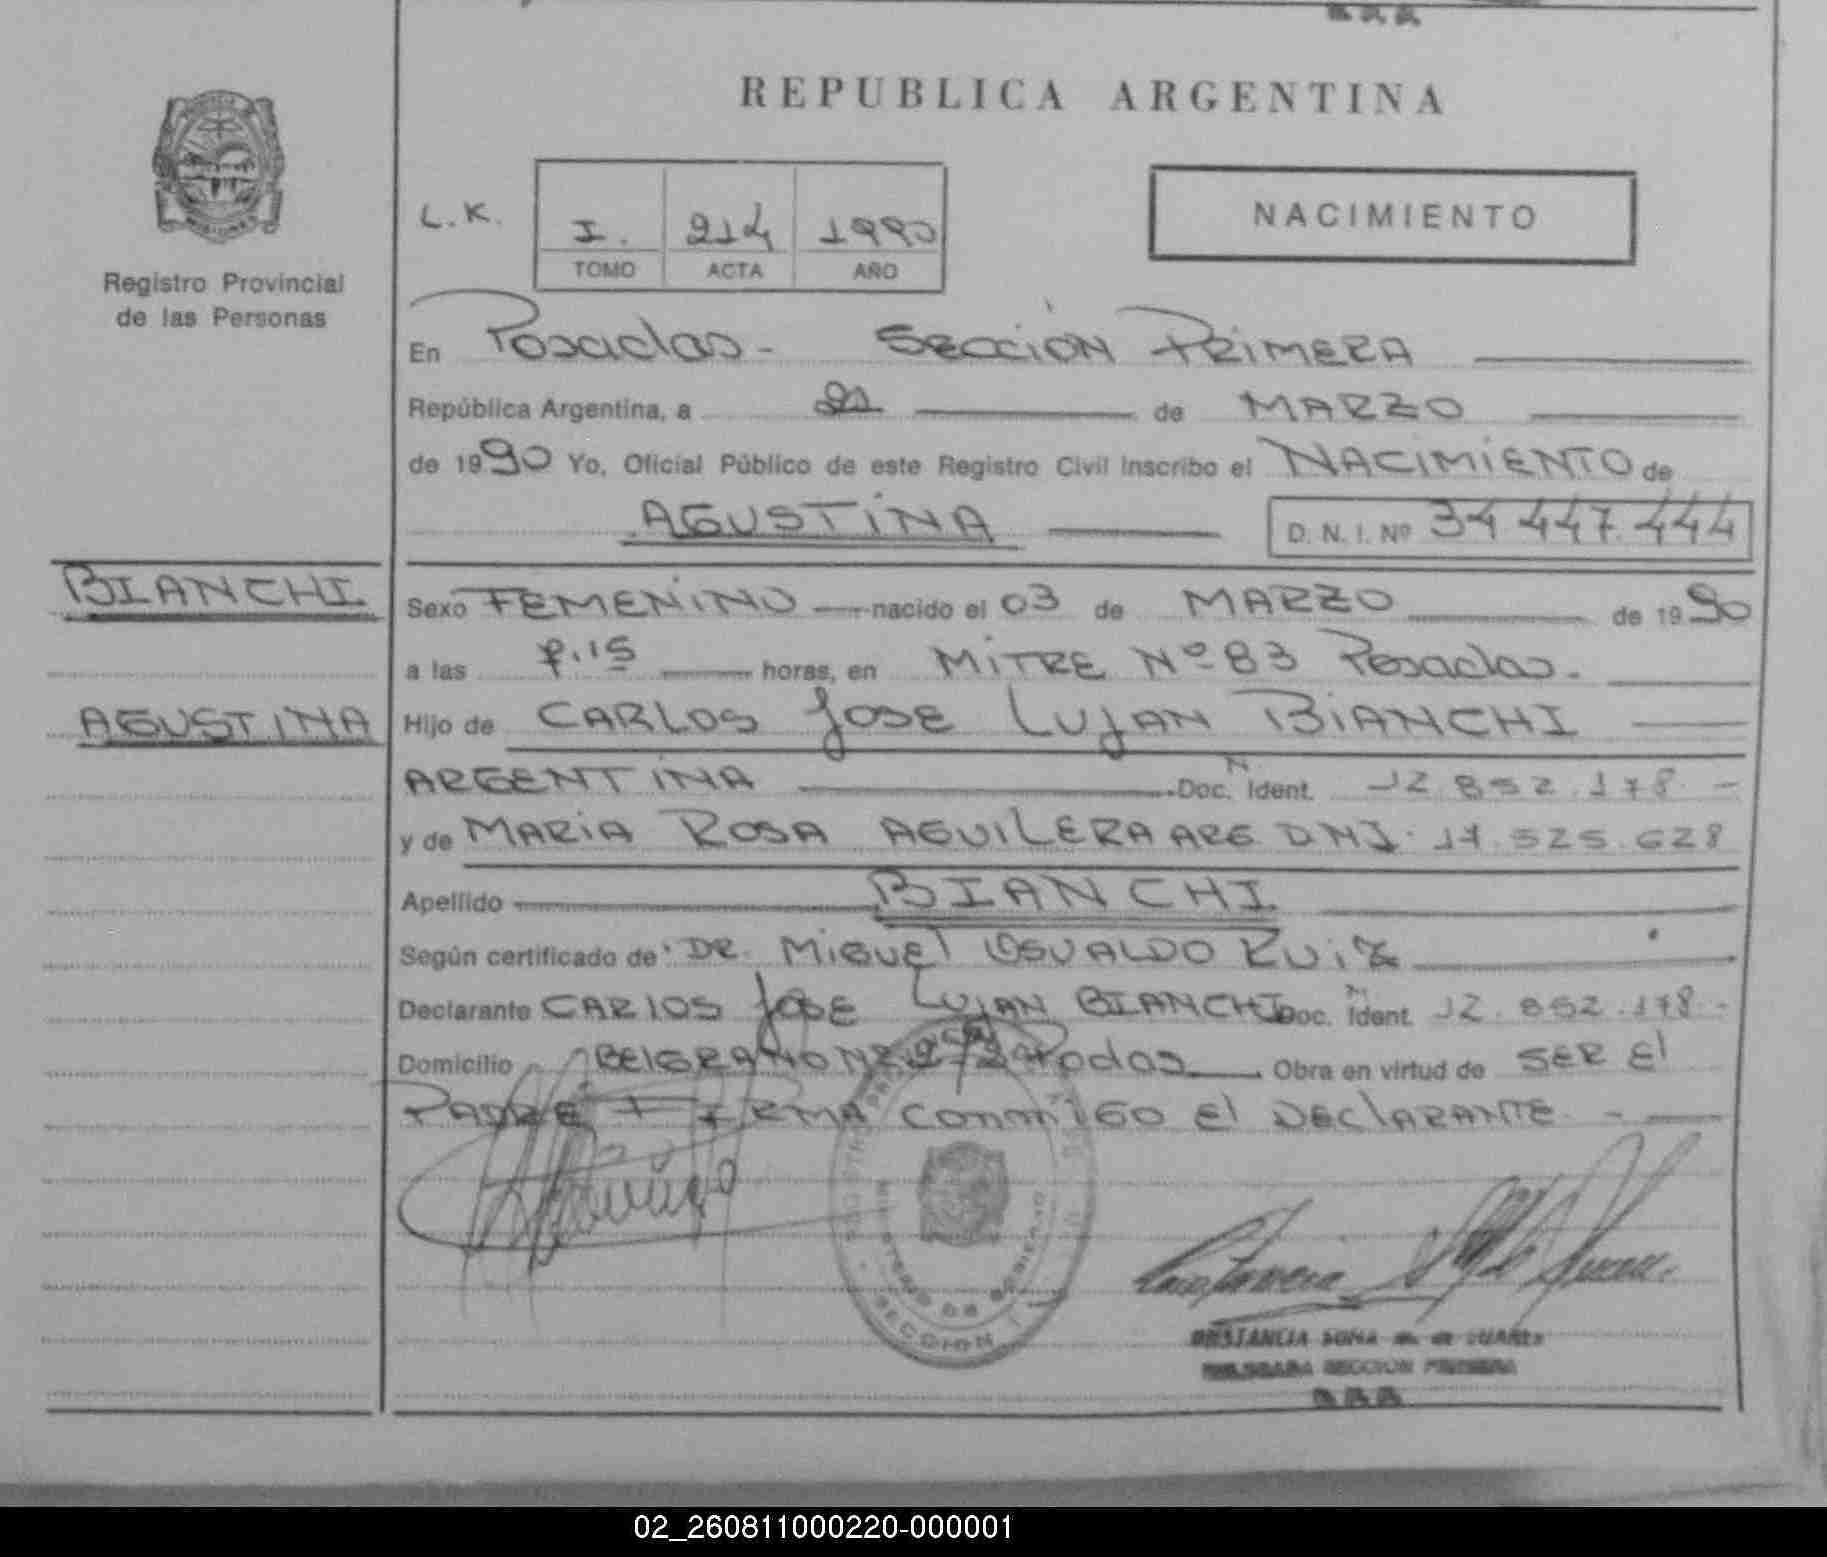 REPUBLICA ARGENTINA
Registro Provincial
de las Personas
L.K.
I. 214 1990
TOMO ACTA AÑO
NACIMIENTO
En Posadas - SECCIÓN PRIMERA
República Argentina, a 21 de MARZO
de 1990 Yo, Oficial Público de este Registro Civil inscribo el NACIMIENTO de
AGUSTINA D. N. I. Nº 34 447.444
BIANCHI
Sexo FEMENINO nacido el 03 de MARZO de 1990
a las horas, en MITRE Nº 83 Posadas.
AGUSTINA
Hijo de CARLOS JOSE LUJAN BIANCHI
ARGENTINA Doc. Ident. 12.852.178 -
y de MARIA ROSA AGUILERA ARG DNI. 17.525.628
Apellido BIANCHI
Según certificado de DR. MIGUEL OSVALDO RUIZ
Declarante CARLOS JOSE LUJAN BIANCHI Doc. Ident. 12.852.178 -
Domicilio BELGRANO Obra en virtud de SER El
PADRE FIRMA CONMIGO El DEClARANTE -
MINISTERIO DE GOBIERNO
SECCION
SECCION PRIMERA
02_260811000220-000001